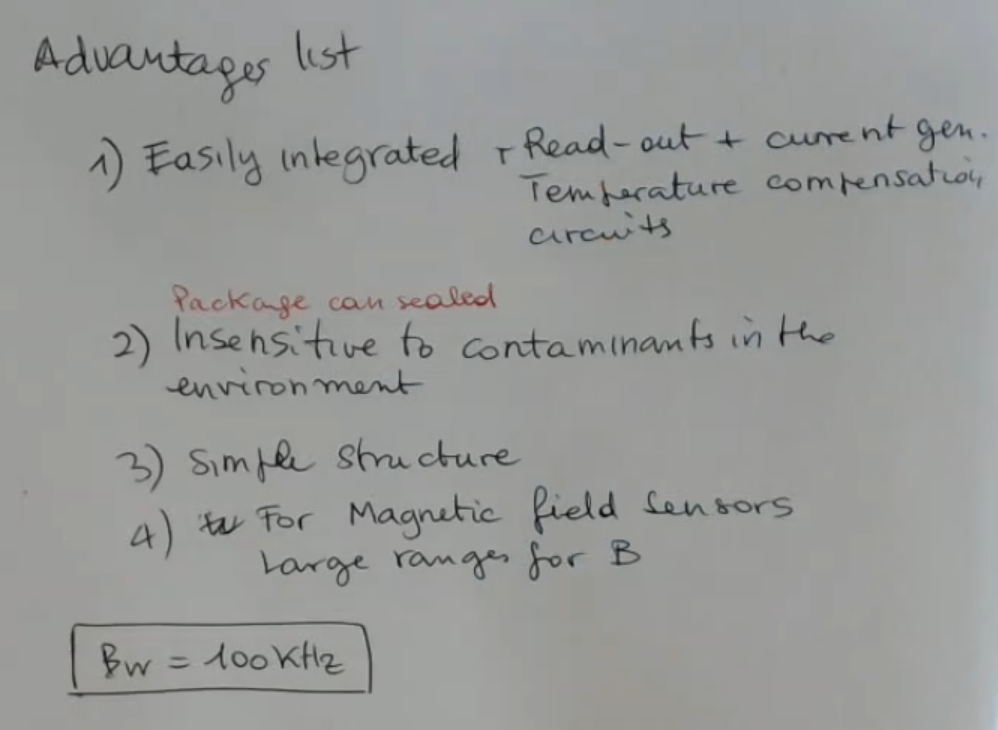 Advantages list
1) Easily integrated + Read-out + current gen.
Temperature compensation
circuits
Package can sealed
2) Insensitive to contaminants in the
environment
3) Simple structure
4) For Magnetic field sensors
Large ranges for B
BW = 100 KHz